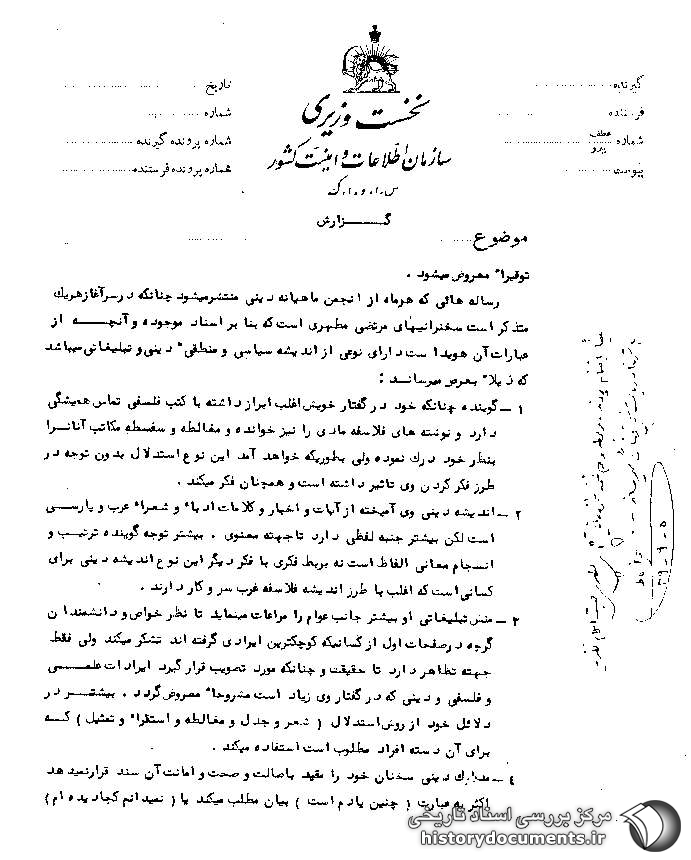 نخست وزیری
سازمان اطلاعات و امنیت کشور
س.ا.و.ا.ک
گیرنده
فرستنده
شماره عطف پیرو
تاریخ
شماره
شماره پرونده گیرنده
شماره پرونده فرستنده
گزارش
موضوع
توقیراً معروض میشود .
رساله هائی که هرماه از انجمن ماهیانه دینی منتشر میشود چنانکه در سرآغاز هریک
متذکر است سخنرانیهای مرتضی مطهری است که بنا بر اسناد موجوده و آنچه از
عبارات آن هویدا است دارای نوعی از اندیشه سیاسی و منطقی دینی و تبلیغاتی میباشد
که ذیلاً بعرض میرساند :
۱ – گوینده چنانکه خود در گفتار خویش اغلب ابراز داشته با کتب فلسفی تماس همیشگی
دارد و نوشته های فلاسفه مادی را نیز خوانده و مغالطه و سفسطه مکاتب آنانرا
بنظر خود درک نموده ولی بطوریکه خواهد آمد این نوع استدلال بدون توجه در
طرز فکر کردن وی تاثیر داشته است و همچنان فکر میکند .
۲ – اندیشه دینی وی آمیخته از آیات و اخبار و کلامات ادباء و شعراء عرب و پارسی
است لکن بیشتر جنبه لفظی دارد تا جهته معنوی . بیشتر توجه گوینده ترتیب و
انسجام معانی الفاظ است نه بربط فکری با فکر دیگر این نوع اندیشه دینی برای
کسانی است که اغلب با طرز اندیشه فلاسفه غرب سر و کار دارند .
۳ – منش تبلیغاتی او بیشتر جانب عوام را مراعات مینماید تا نظر خواص و دانشمندان
گرچه در صفحات اول از کسانیکه کوچکترین ایرادی گرفته اند تشکر میکند ولی فقط
جهته تظاهر دارد تا حقیقت و چنانکه مورد تصویب قرار گیرد ایرادات علمی
و فلسفی و دینی که در گفتار وی زیاد است مشروحاً معروض گردد . بیشتر در
دلائل خود از روش استدلال ( شعر و جدل و مغالطه و استقراء و تمثیل ) که
برای آن دسته افراد مطلوب است استفاده میکند .
۴ – مدارک دینی سخنان خود را مقید باصالت و صحت و امانت آن سند قرار نمیدهد
اکثر به عبارت ( چنین یادم است ) بیان مطلب میکند یا ( نمیدانم کجا دیده ام )
مرکز بررسی اسناد تاریخی
historydocuments.ir